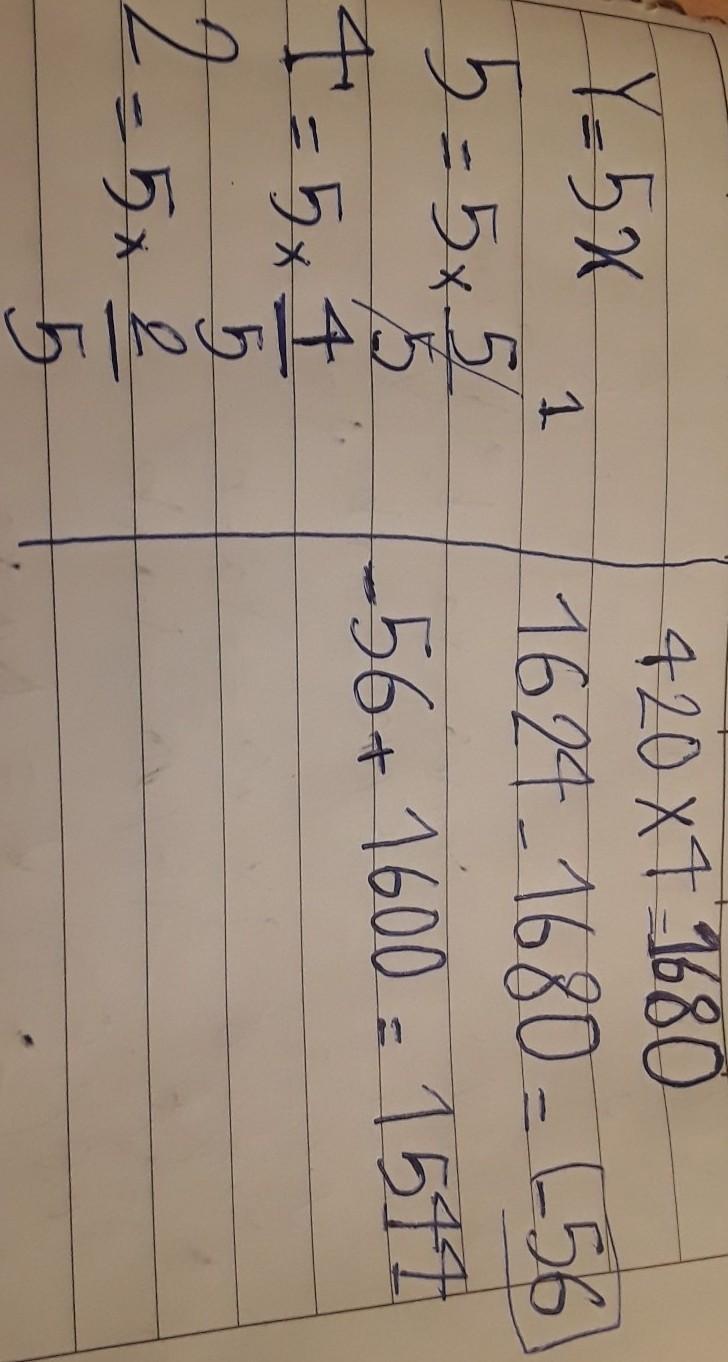 Y = 5x
5 = 5 × 5/5 1
4 = 5 × 4/5
2 = 5 × 2/5
420 × 4 = 1680
1624 - 1680 = (-56
-56 + 1600 = 1544